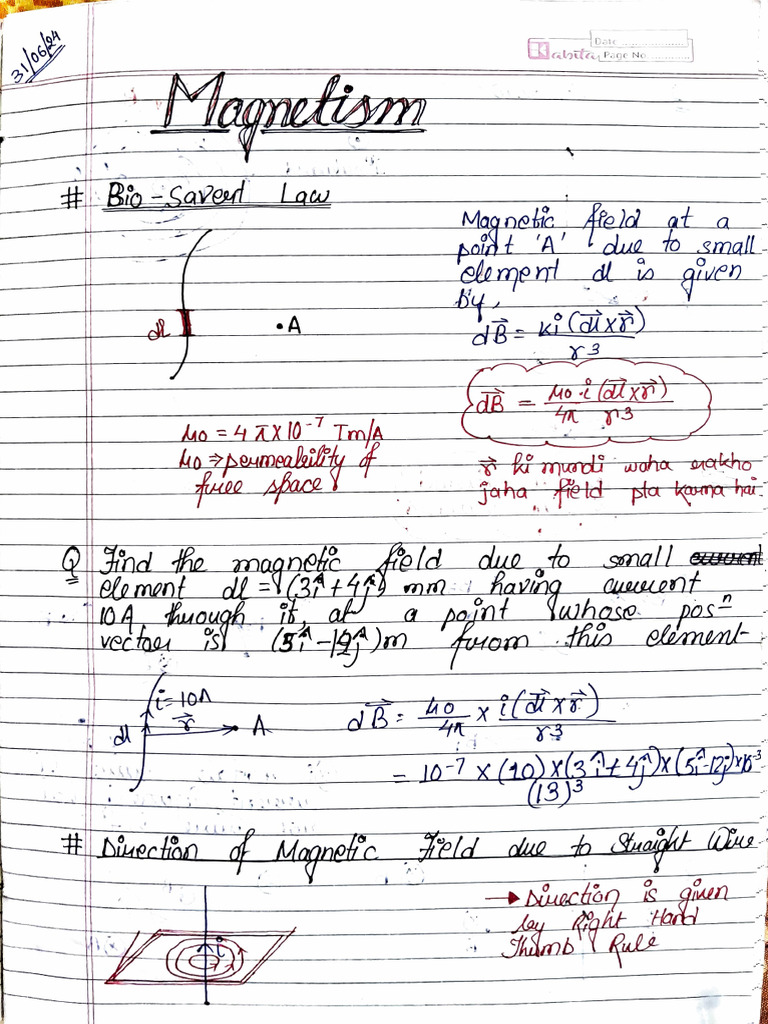 31/06/24
Kabita
Date
Page No
Magnetism
# Bio-Savert Law
Magnetic field at a
point 'A' due to small
element dl is given
by,
dl
•A
dB⃗ = ki (dl⃗ x r⃗) / r3
dB⃗ = μo · i (dl⃗ x r⃗) / 4π r3
μo = 4 π x 10⁻⁷ Tm/A
μo ⇒ permeability of
free space
r⃗ ki mundi waha rakho
jaha field pta karna hai.
Q Find the magnetic field due to small
element dl = (3î + 4ĵ) mm having current
10A through it, at a point whose posⁿ
vector is (5î - 12ĵ)m from this element
i=10A
r⃗
dl
A
dB⃗ = μo / 4π x i (dl⃗ x r⃗) / r3
= 10⁻⁷ x (10) x (3î + 4ĵ) x (5î - 12ĵ) x 10⁻³ / (13)³
# Direction of Magnetic Field due to Straight Wire
→ Direction is given
by Right Hand
Thumb Rule
i